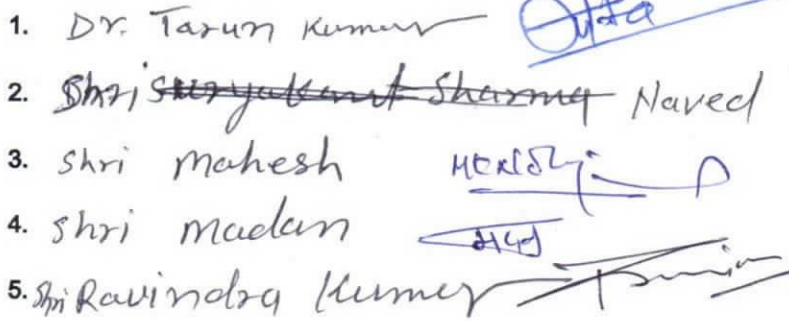 1. Dr. Tarun Kumar
2. Shri Suryakant Sharma Naved
3. Shri Mahesh
4. Shri madan मदन
5. Shri Ravindra Kumar